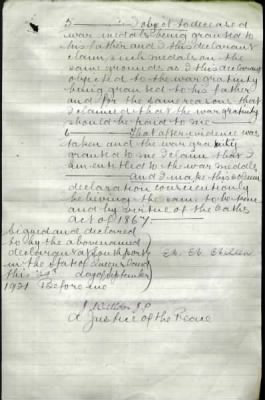 5 ——— I object to deceased
war medals being granted to
his father and I this declarant
claim such medals on the
same grounds as I this declarant
objected to the war gratuity
being granted to his father
and for the same reasons that
I claimed that the war gratuity
should be paid to me
6 ——— That after evidence was
taken and the war gratuity
granted to me I claim that I
am entitled to the war medals
——— And I make this solemn
declaration conscientiously
believing the same to be true
and by virtue of the Oaths
Act of 1867
Signed and declared
to by the abovenamed
declarant at Southport
in the State of Queensland
this 29th day of September
1921 Before me
J.P.
A Justice of the Peace